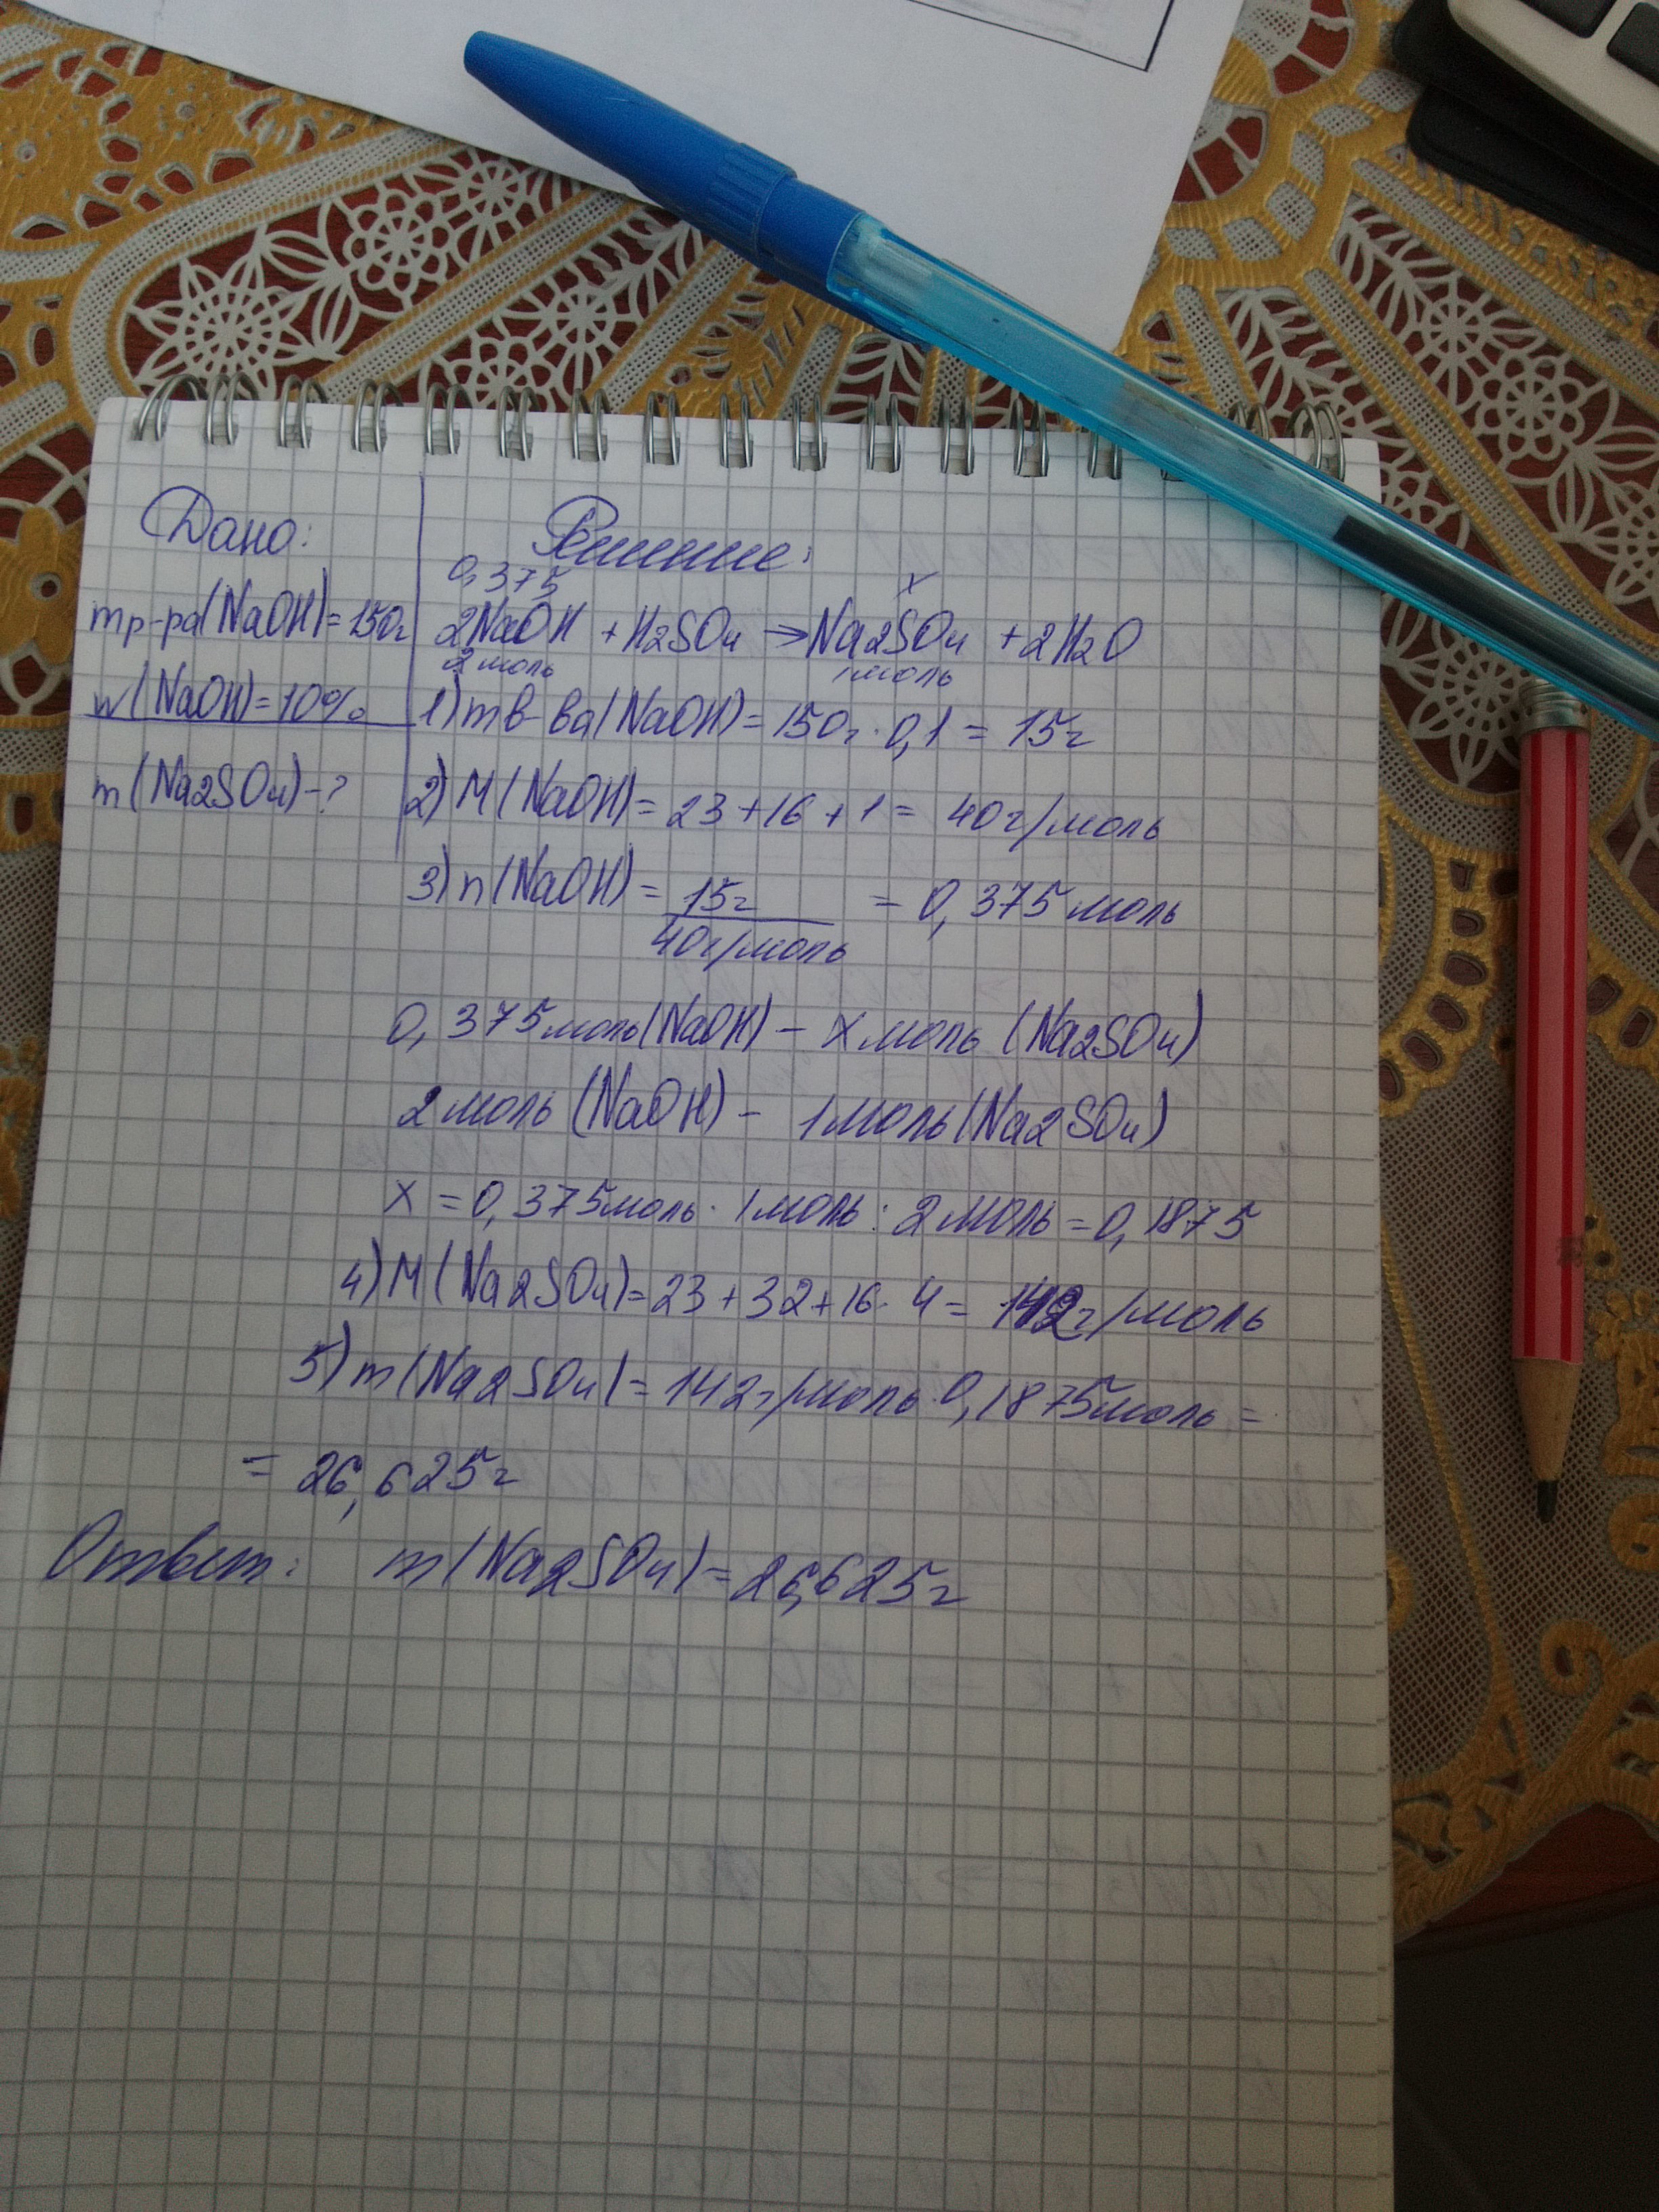 Дано:
mр-ра(NaOH)=150г
w(NaOH)=10%
m(Na2SO4)-?
Решение:
0,375 x
2NaOH + H2SO4 → Na2SO4 + 2H2O
2 моль 1 моль
1) mв-ва(NaOH) = 150г · 0,1 = 15г
2) M(NaOH) = 23 + 16 + 1 = 40г/моль
3) n(NaOH) = 15г
40г/моль = 0,375 моль
0,375 моль(NaOH) – x моль (Na2SO4)
2 моль (NaOH) – 1 моль (Na2SO4)
x = 0,375моль · 1моль : 2 моль = 0,1875
4) M(Na2SO4) = 23 + 32 + 16 · 4 = 142г/моль
5) m(Na2SO4) = 142г/моль · 0,1875моль =
= 26,625г
Ответ: m(Na2SO4) = 26,625г